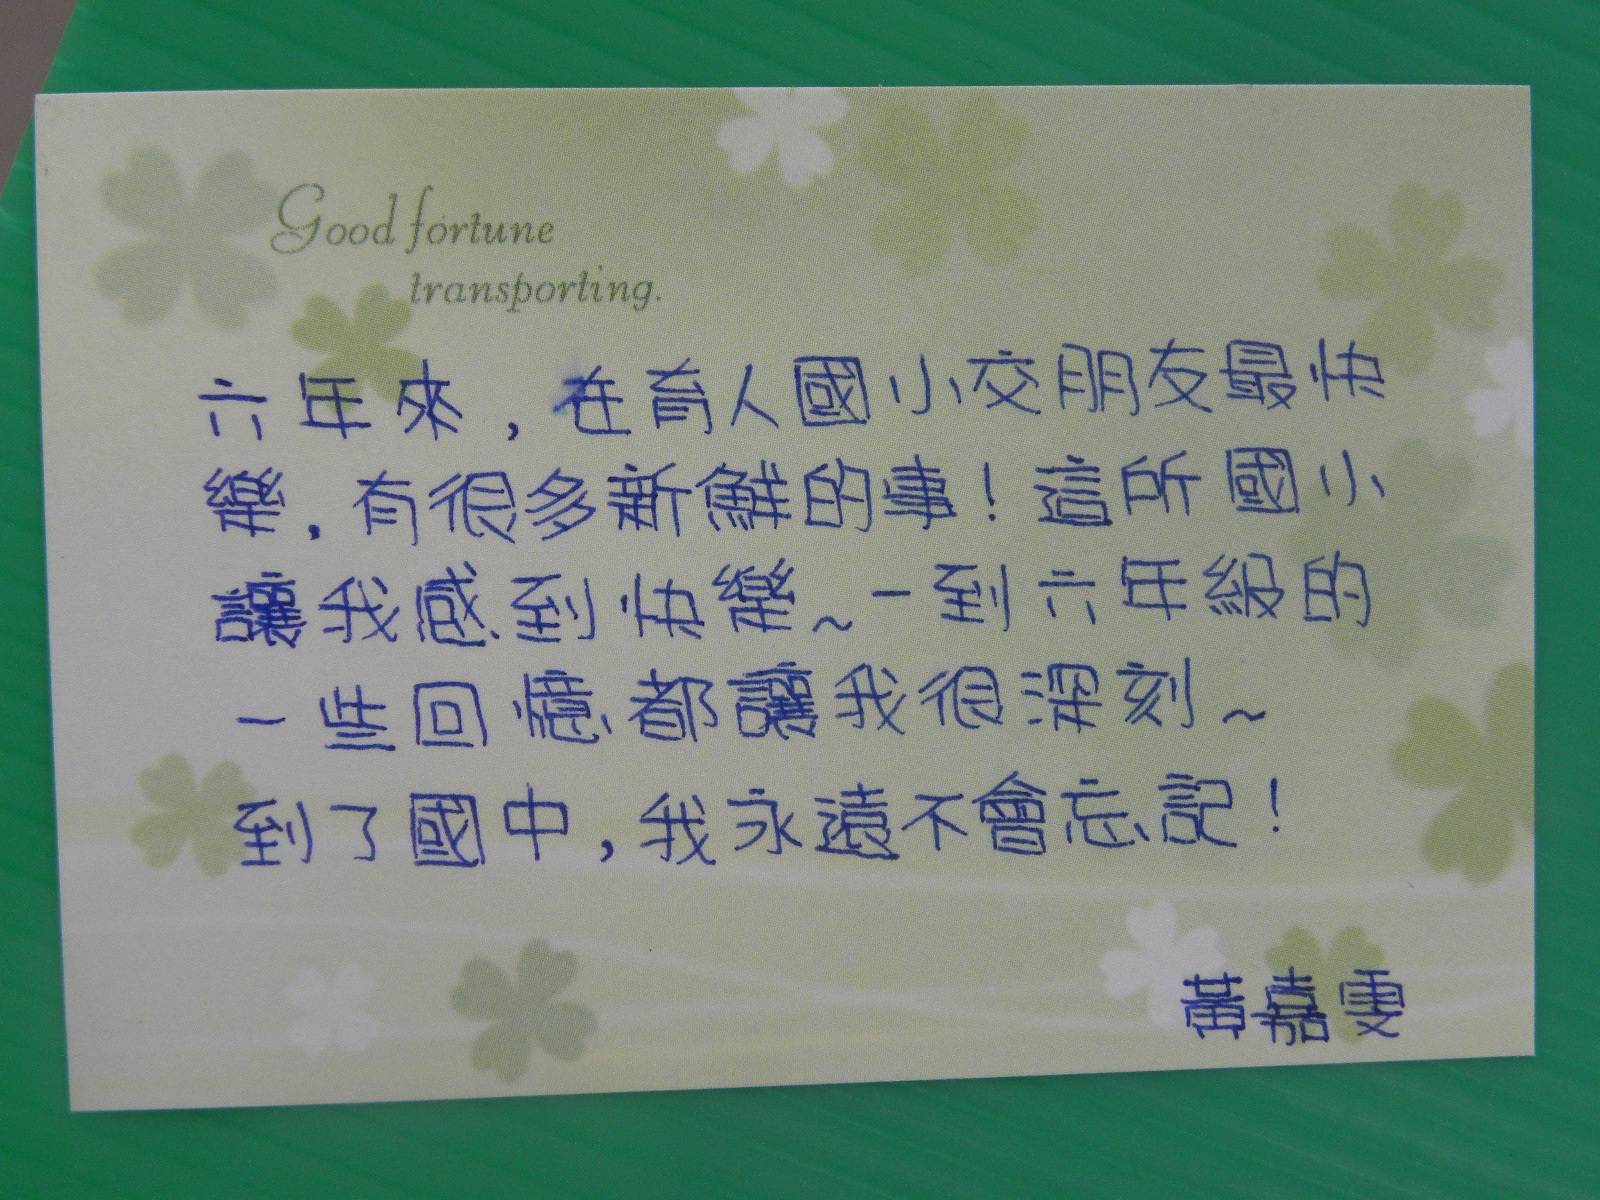 Good fortune
transporting.
六年來,在育人國小交朋友最快
樂,有很多新鮮的事!這所國小
讓我感到快樂~一到六年級的
一些回憶都讓我很深刻~
到了國中,我永遠不會忘記!
黃嘉雯